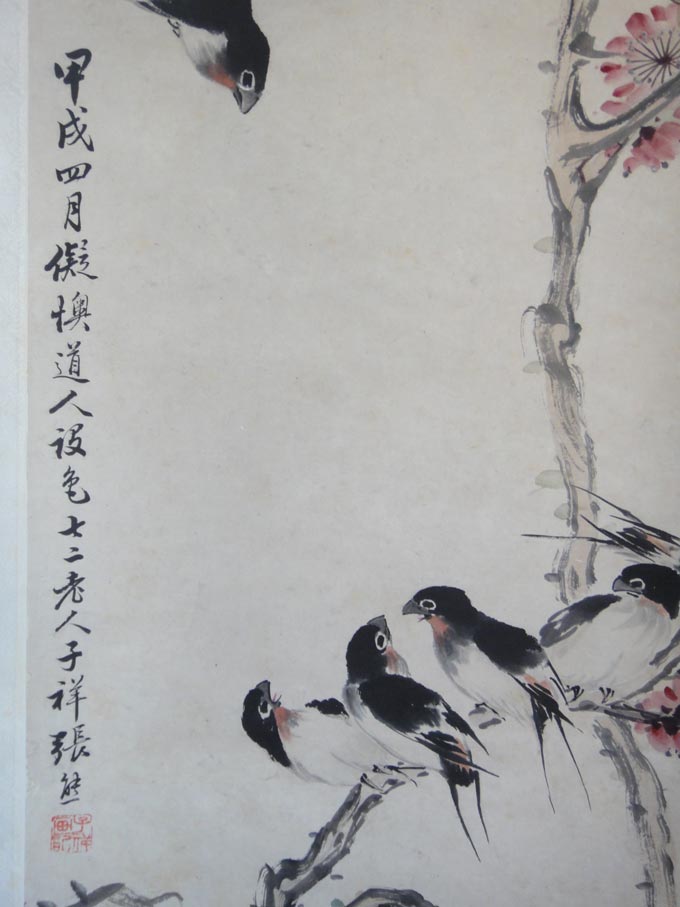 甲戌四月儗懊道人設色七二老人子祥張熊